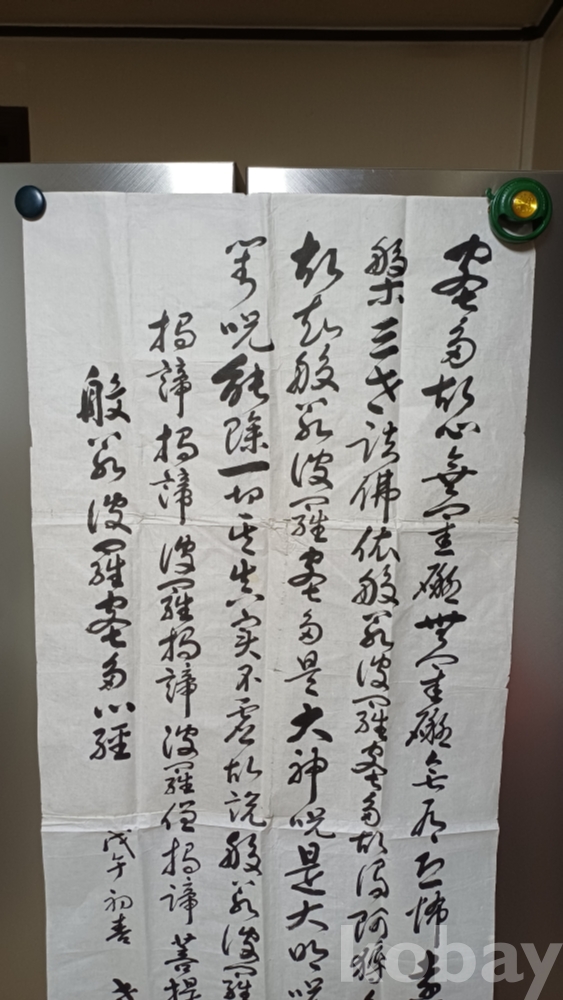 蜜多故心無罣礙無罣礙無有恐怖遠
槃三世諸佛依般若波羅蜜多故得阿耨多
故知般若波羅蜜多是大神呪是大明呪
等呪能除一切苦真實不虛故說般若波羅
揭諦揭諦波羅揭諦波羅僧揭諦菩提
般若波羅蜜多心經
戊午初春
kobay